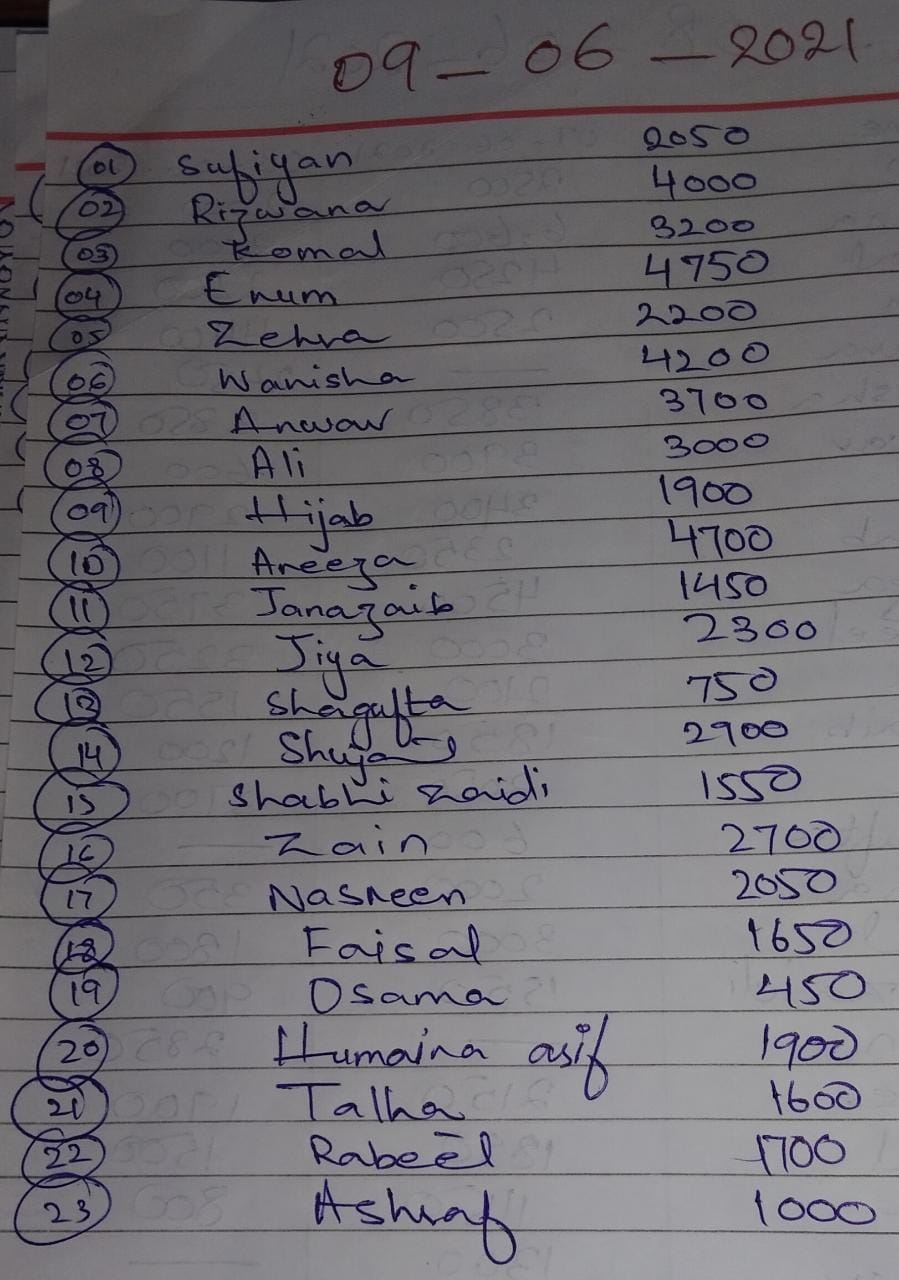 09-06-2021
01 Sufiyan 2050
02 Rizwana 4000
03 Komal 3200
04 Enum 4750
05 Zehra 2200
06 Wanisha 4200
07 Anwar 3700
08 Ali 3000
09 Hijab 1900
10 Areeza 4700
11 Janazaib 1450
12 Jiya 2300
13 Shagufta 750
14 Shuja 2900
15 Shabhi Zaidi 1550
16 Zain 2700
17 Nasreen 2050
18 Faisal 1650
19 Osama 450
20 Humaira asif 1900
21 Talha 1600
22 Rabeel 1700
23 Ashraf 1000